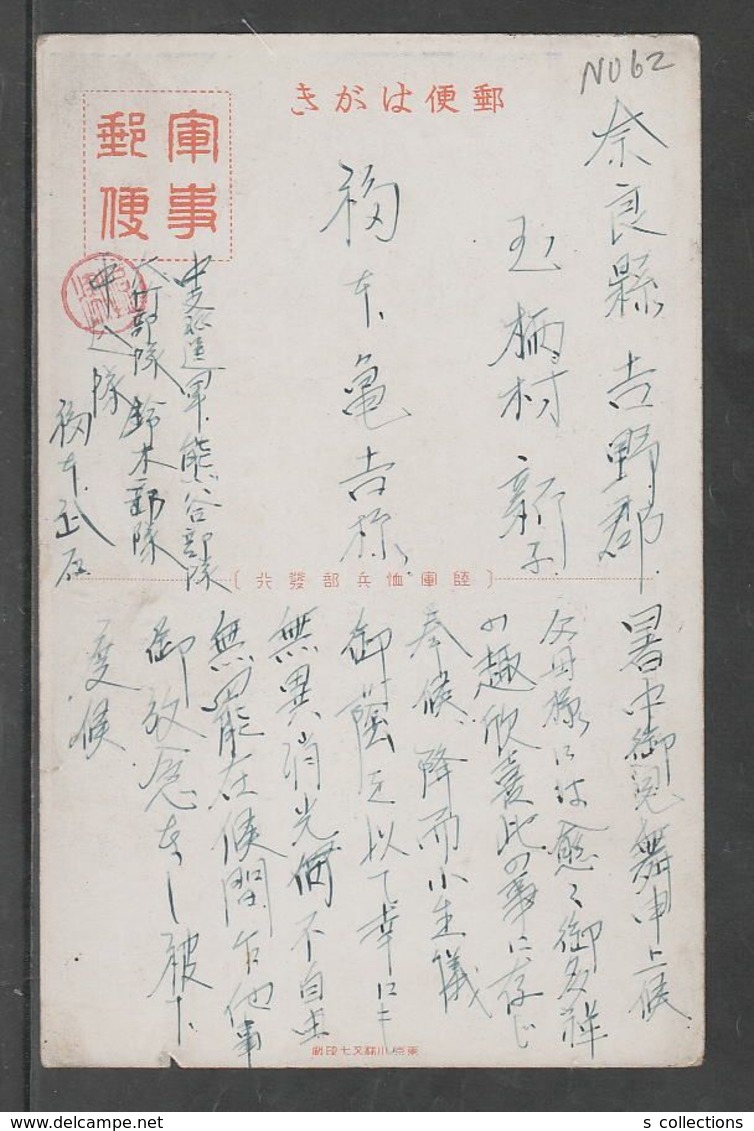 NO62
郵便はがき
軍事郵便
奈良縣吉野郡
玉柄村新子
福本亀吉様
中支派遣軍熊谷部隊
竹部隊鈴木部隊
中 隊
福本武
〔陸軍恤兵部發行〕
暑中御見舞申上候
父母様には愈々御多祥
の趣欣喜此の事に存じ
奉候、降而小生儀
御蔭を以て幸に
無異消光何不自由
無罷在候間乍他事
御放念なし被下
度候
東京小林又七印刷
s collections